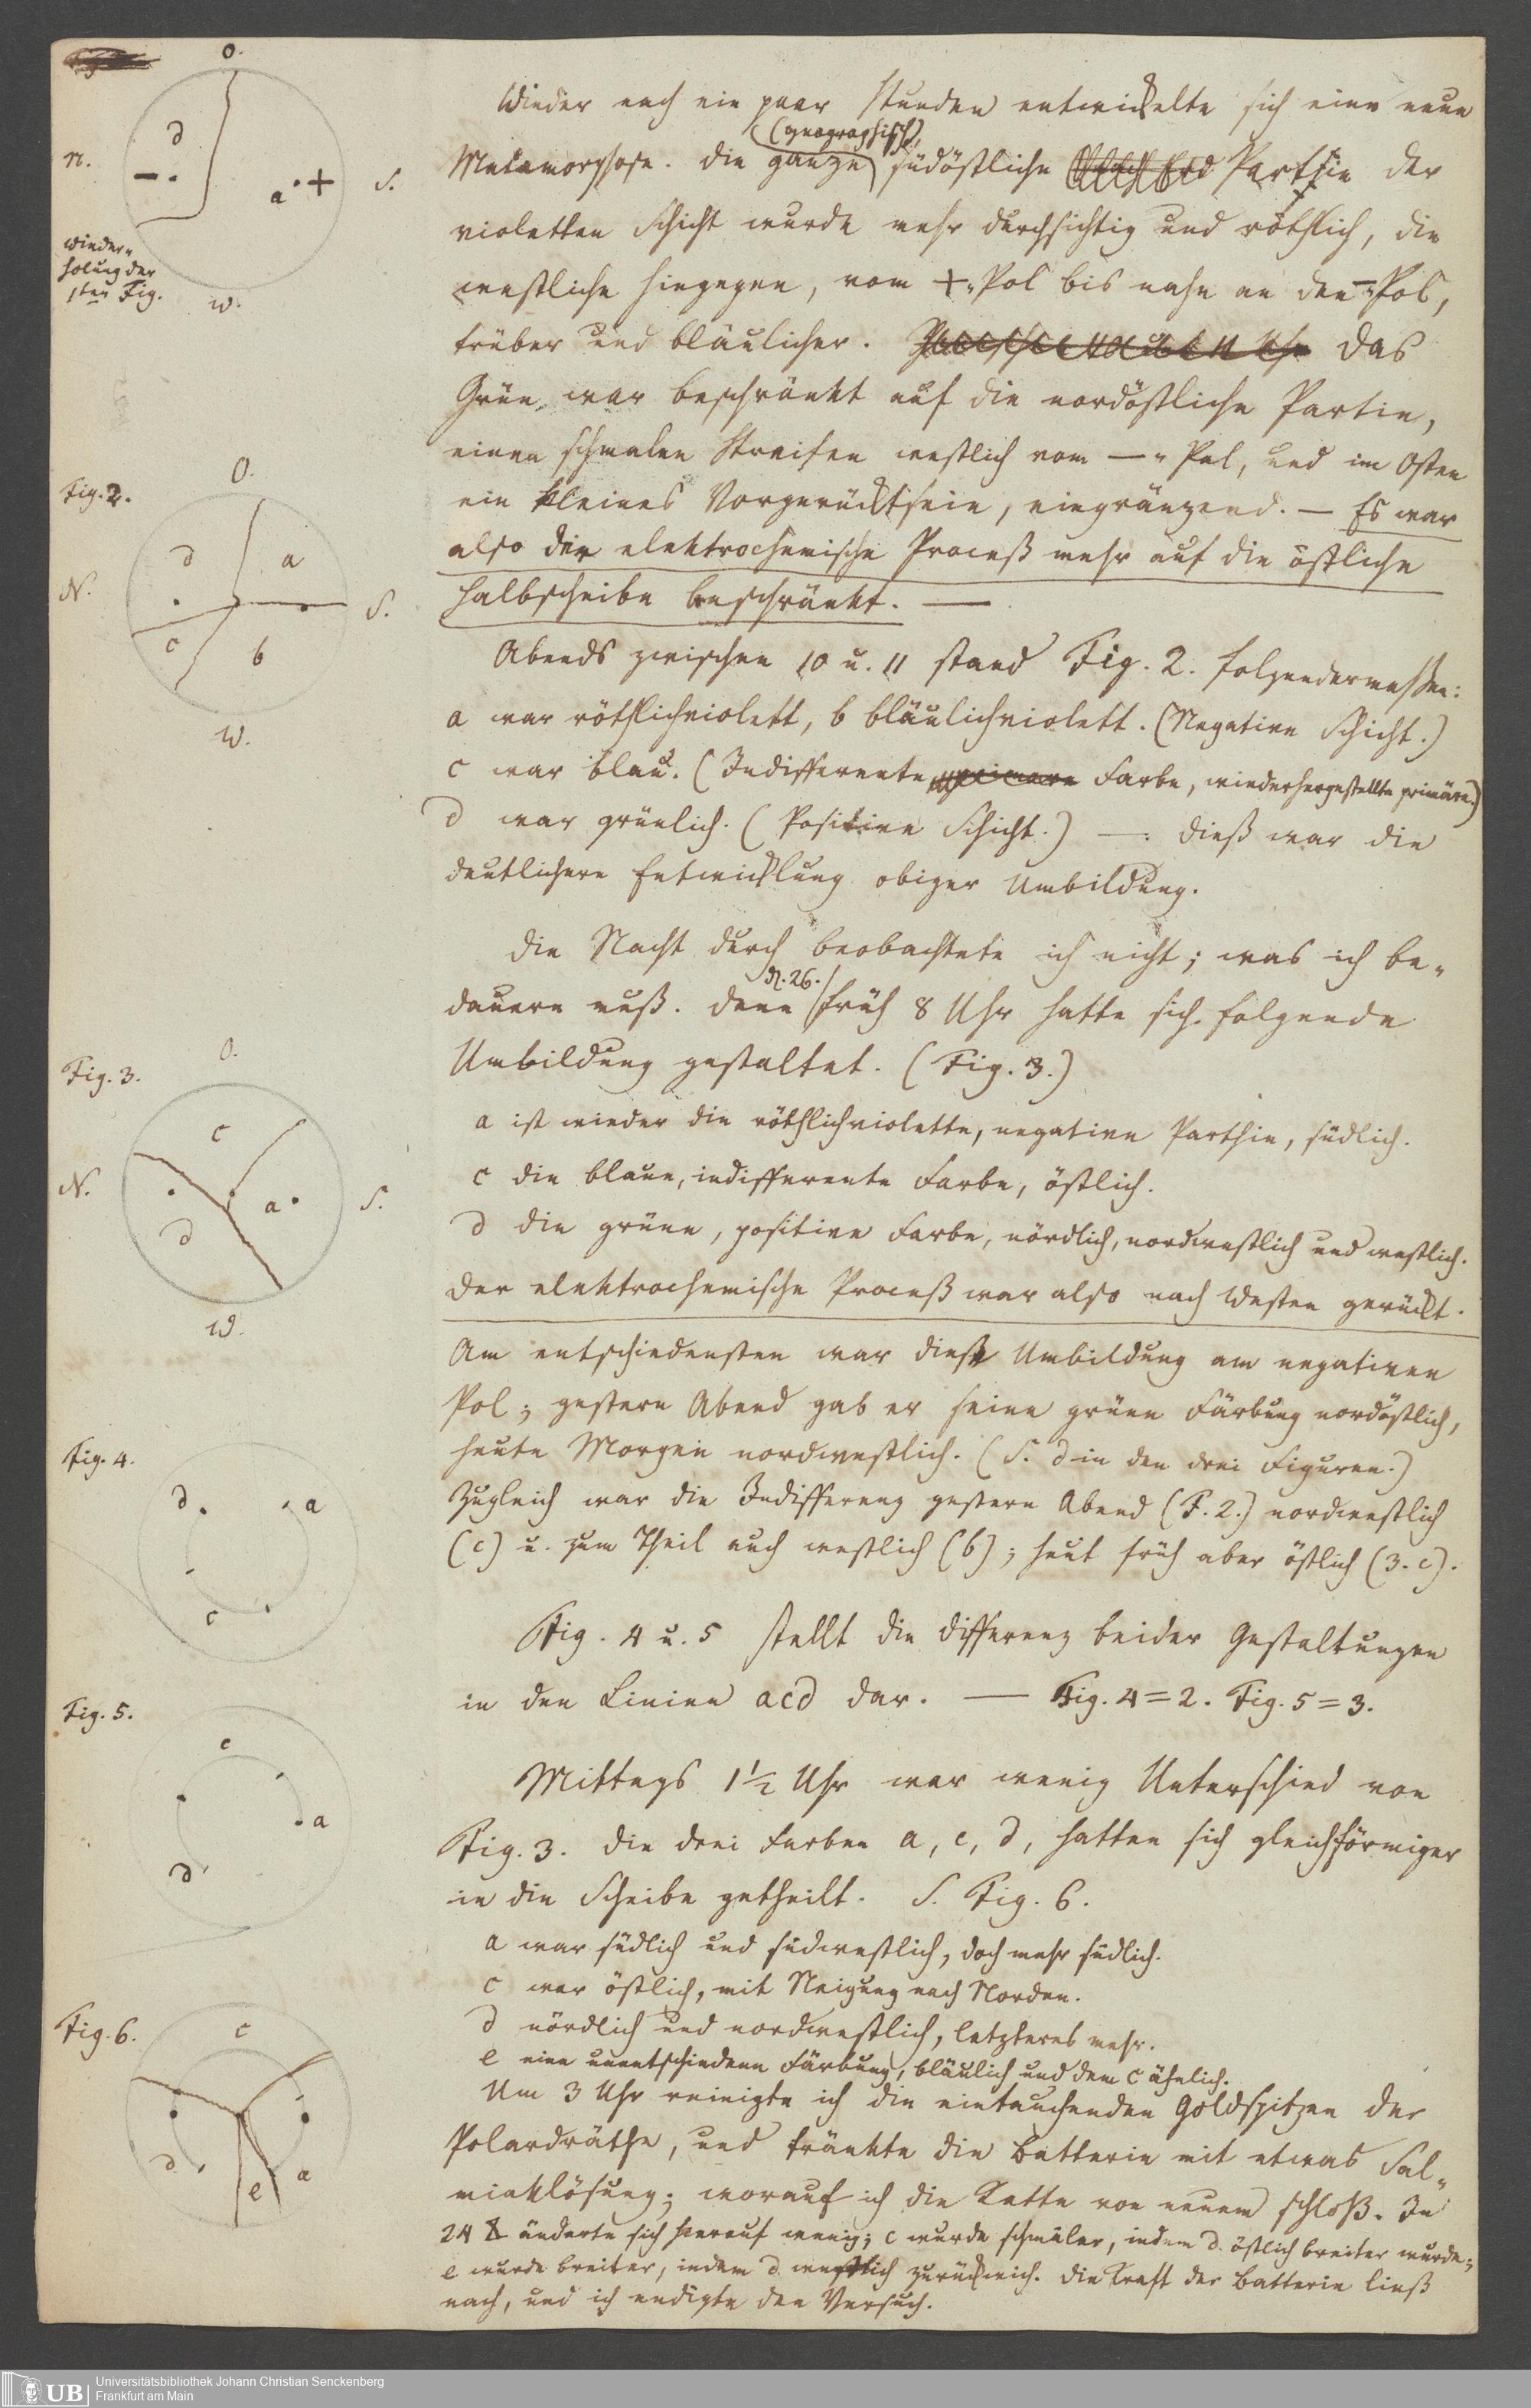 O.
d
n.
– .
a . +
S.
wieder-
holung der
1ten Fig.
W.
Wieder nach ein paar Stunden entwickelte sich eine neue
(geographisch)
Metamorphose. Die ganze südöstliche Parthie der
violetten Schicht wurde mehr durchsichtig und röthlich, die
westliche hingegen, vom +-Pol bis nahe an den –-Pol,
trüber und bläulicher. Das
Grün war beschränkt auf die nordöstliche Partie,
einen schmalen Streifen westlich vom –-Pol, und im Osten
ein kleines Vorgerücktsein, eingränzend. — Es war
also der elektrochemische Proceß mehr auf die östliche
Halbscheibe beschränkt. —
Fig. 2.
O.
d
a
N.
S.
c
b
W.
Abends zwischen 10 u. 11 stand Fig. 2. folgendermaßen:
a war röthlichviolett, b bläulichviolett. (Negative Schicht.)
c war blau. (Indifferente Farbe, wiederhergestellte primäre.)
d war grünlich. (Positive Schicht.) —. Dieß war die
deutlichere Entwicklung obiger Umbildung.
Die Nacht durch beobachtete ich nicht; was ich be-
d. 26.
dauern muß. Denn früh 8 Uhr hatte sich folgende
Umbildung gestaltet. (Fig. 3.)
Fig. 3.
O.
c
N.
a
S.
d
W.
a ist wieder die röthlichviolette, negative Parthie, südlich.
c die blaue, indifferente Farbe, östlich.
d die grüne, positive Farbe, nördlich, nordwestlich und westlich.
Der elektrochemische Proceß war also nach Westen gerückt.
Am entschiedensten war diese Umbildung am negativen
Pol; gestern Abend gab er seine grüne Färbung nordöstlich,
heute Morgen nordwestlich. (S. d in den drei Figuren.)
Zugleich war die Indifferenz gestern Abend (F. 2.) nordwestlich
(c) u. zum Theil auch westlich (b); heut früh aber östlich (3. c).
Fig. 4.
d
a
c
Fig. 4 u. 5 stellt die Differenz beider Gestaltungen
in den Linien acd dar. — Fig. 4 = 2. Fig. 5 = 3.
Fig. 5.
c
a
d
Mittags 1½ Uhr war wenig Unterschied von
Fig. 3. Die drei Farben a, c, d, hatten sich gleichförmiger
in die Scheibe getheilt. S. Fig. 6.
a war südlich und südwestlich, doch mehr südlich.
c war östlich, mit Neigung nach Norden.
d nördlich und nordwestlich, letzteres mehr.
e eine unentschiedene Färbung, bläulich und dem c ähnlich.
Fig. 6.
c
d
e
a
Um 3 Uhr reinigte ich die eintauchenden Goldspitzen der
Polardräthe, und tränkte die Batterie mit etwas Sal-
miaklösung; worauf ich die Kette von neuem schloß. In
24 änderte sich hierauf wenig; c wurde schmäler, indem d östlich breiter wurde;
e wurde breiter, indem d westlich zurückwich. Die Kraft der Batterie ließ
nach, und ich endigte den Versuch.
UB
Universitätsbibliothek Johann Christian Senckenberg
Frankfurt am Main